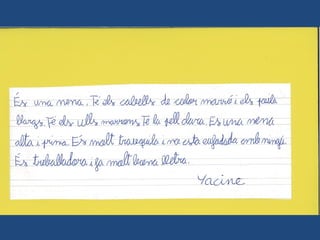 És una nena. Té els cabells de color marró i els porta
llargs. Té els ulls marrons. Té la pell clara. Es una nena
alta i prima. És molt tranquila i no està enfadada amb ningú.
És treballadora i fa molt bona lletra.
Yacine